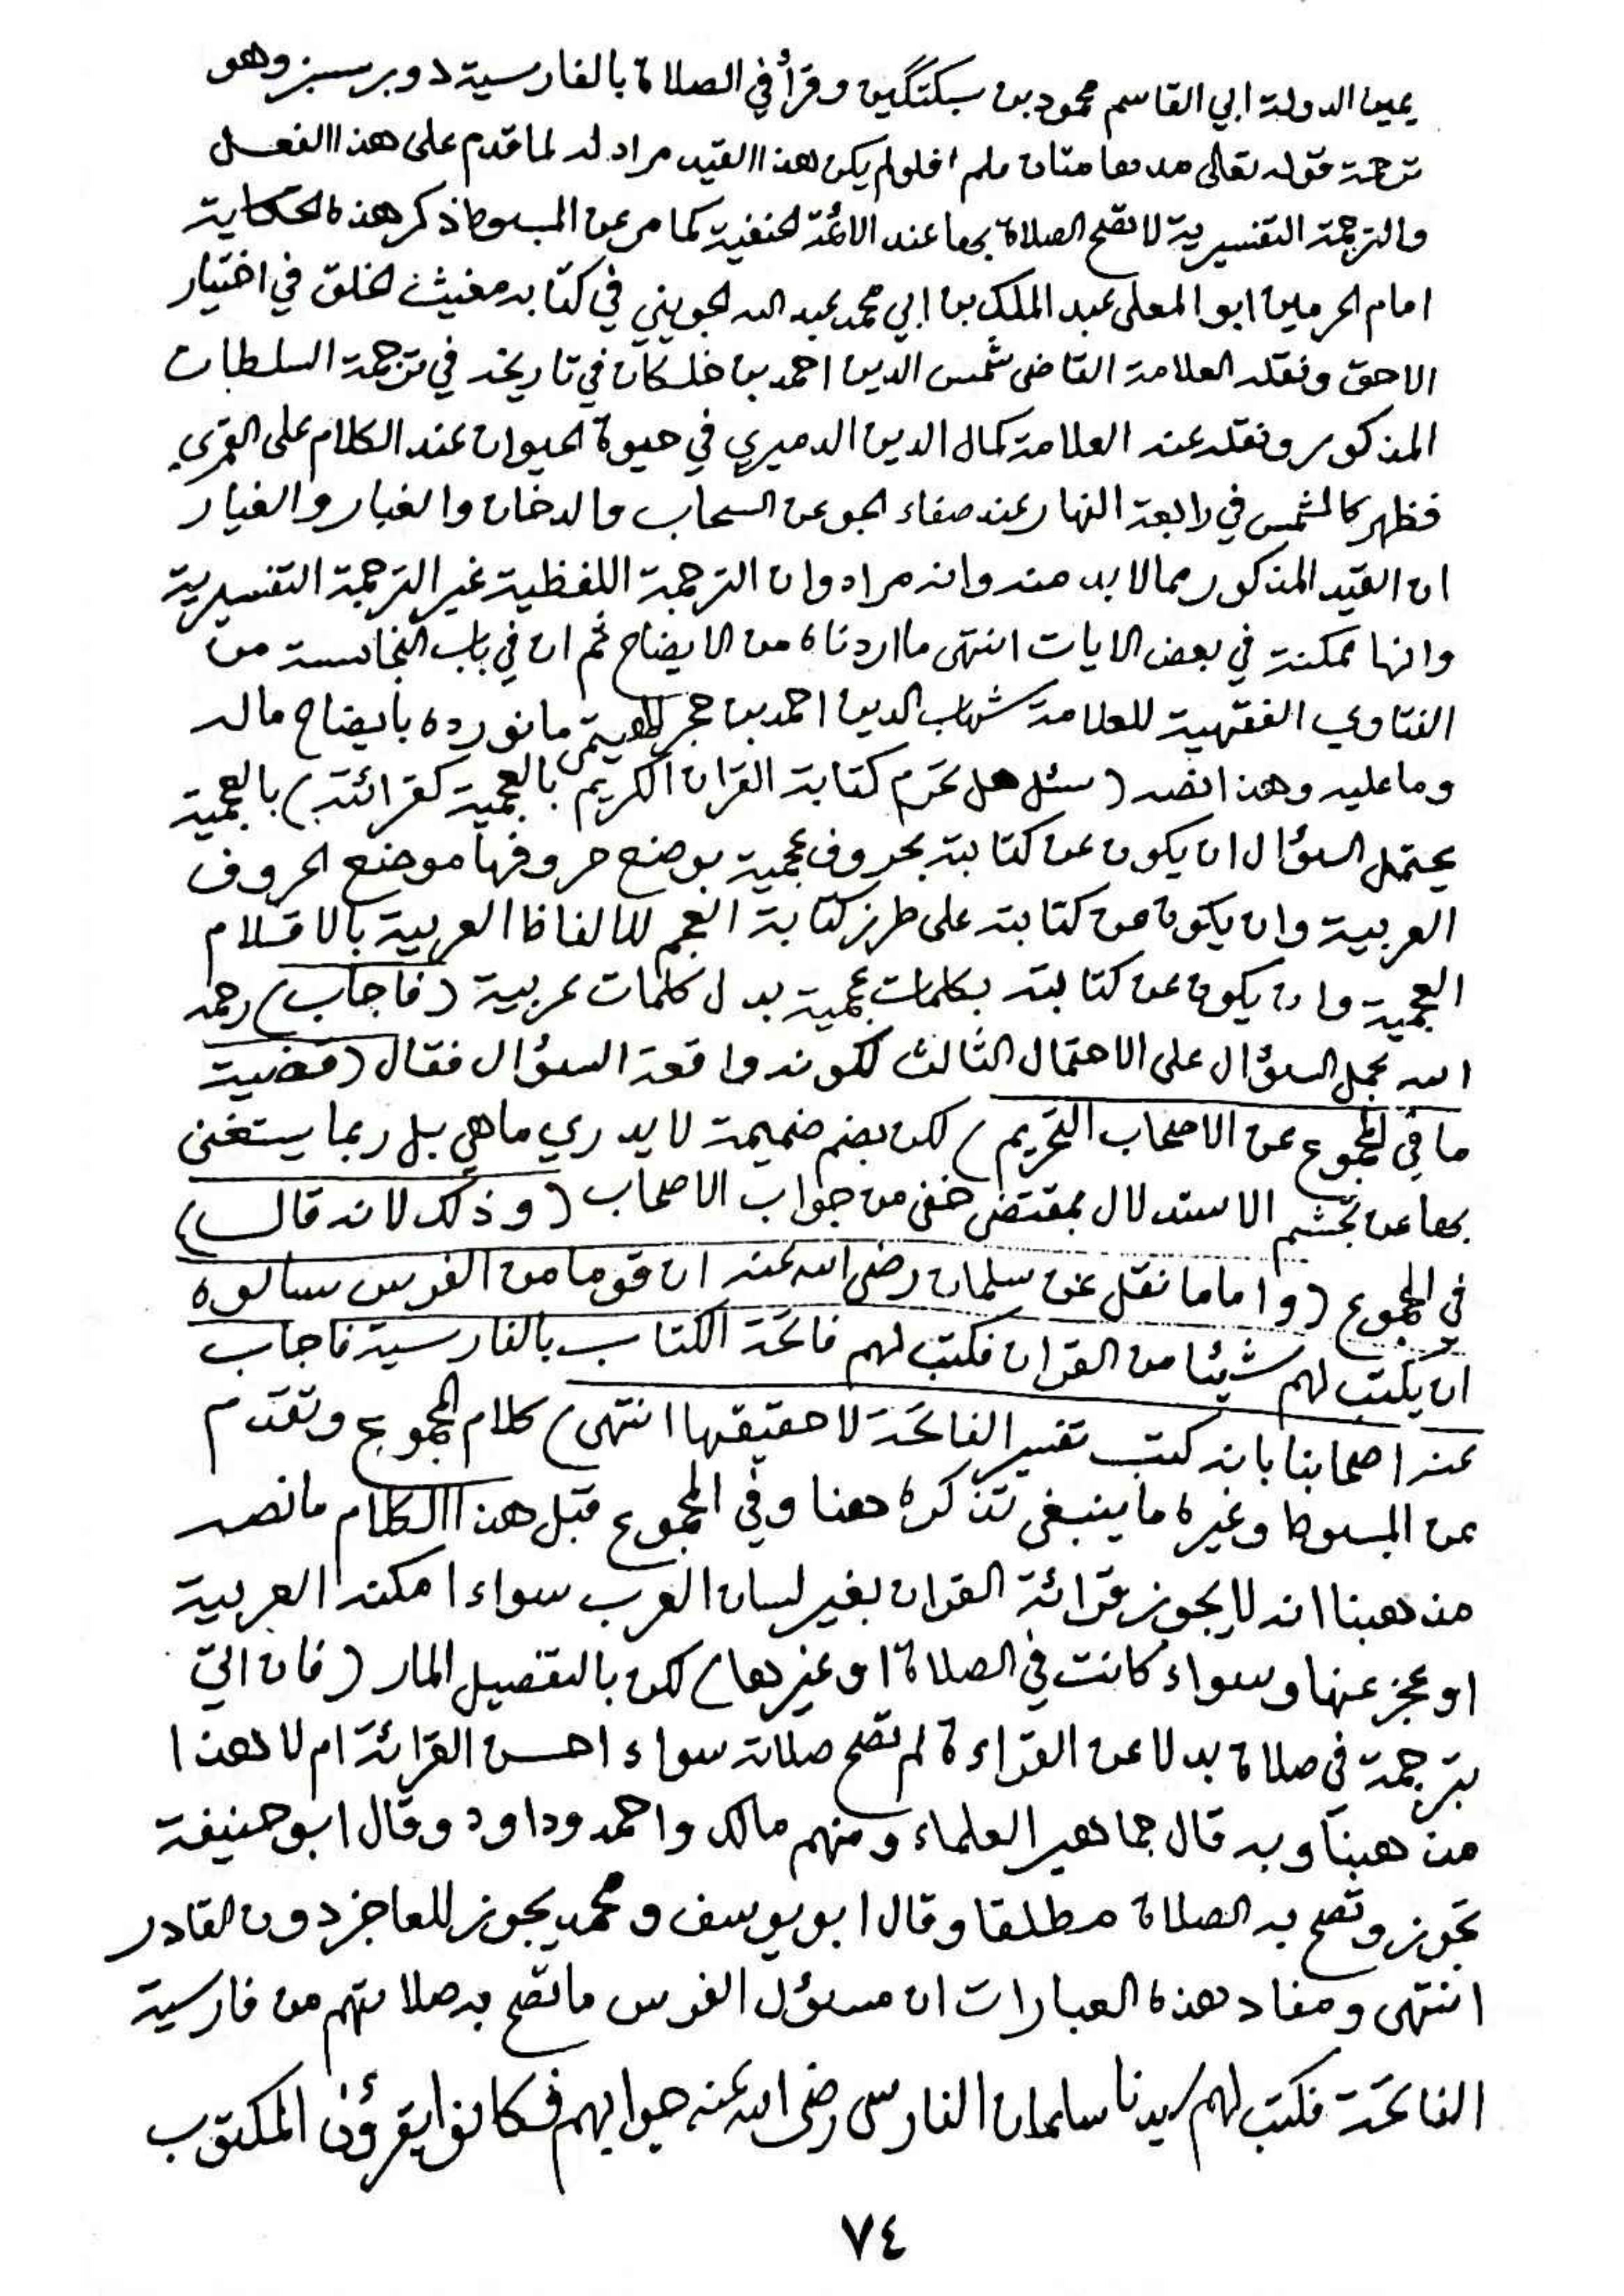 يمين الدولة ابي القاسم محمود بن سبكتگين وقرأ في الصلاة بالفارسية دو برسبز وهو
ترجمة قوله تعالى مدهامتان فلو لم يكن هذا القيد مراد له لما قدم على هذا الفعل
والترجمة التفسيرية لا تصح الصلاة بها عند الائمة الحنفية كما مر عن المبسوط ذكر هذه الحكاية
امام الحرمين ابو المعلى عبد الملك بن ابي محمد عبد الله الجويني في كتابه مغيث الخلق في اختيار
الاحق ونقله العلامة القاضى شمس الدين احمد بن خلكان في تاريخه في ترجمة السلطان
المذكور ونقله عنه العلامة كمال الدين الدميري في حيوة الحيوان عند الكلام على القمري
فظهر كالشمس في رابعة النهار عند صفاء الجو عن السحاب والدخان والغبار والغيار
ان القيد المذكور مما لا بد منه وانه مراد وان الترجمة اللفظية غير الترجمة التفسيرية
وانها ممكنة في بعض الايات انتهى ما اردناه من الايضاح ثم ان في باب النجاسة من
الفتاوي الفقهية للعلامة شهاب الدين احمد بن حجر الهيتمى ما نورده بايضاح ماله
وما عليه وهذا نصه (سئل هل تحرم كتابة القران الكريم بالعجمية كقرائته) بالعجمية
يحتمل السؤال ان يكون عن كتابته بحروف عجمية بوضع حروفها موضع الحروف
العربية وان يكون من كتابته على طرز كتابة العجم للالفاظ العربية بالاقلام
العجمية وان يكون عن كتابته بكلمات عجمية بدل كلمات عربية (فاجاب) رحمه
الله بحمل السؤال على الاحتمال الثالث لكونه واقعة السؤال فقال (قضية
ما في المجموع عن الاصحاب التحريم) لكن بضم ضميمة لا يدري ما هي بل ربما يستغنى
بها عن تجشم الاستدلال بمقتضى خفى من جواب الاصحاب (وذلك لانه قال)
في المجموع (واما ما نقل عن سلمان رضى الله عنه ان قوما من الفرس سالوه
ان يكتب لهم شيئا من القران فكتب لهم فاتحة الكتاب بالفارسية فاجاب
عنه اصحابنا بانه كتب تفسير الفاتحة لا حقيقها انتهى) كلام المجموع وتقدم
عن المبسوط وغيره ما ينبغى تذكره هنا وفي المجموع قبل هذا الكلام مانصه
مذهبنا انه لا يجوز قرائة القران بغير لسان العرب سواء امكنه العربية
او عجز عنها وسواء كانت في الصلاة او غيرها) لكن بالتفصيل المار (فان اتي
بترجمة في صلاة بدلا عن القراءة لم تصح صلاته سواء احسن القرائة ام لا هذا
مذهبنا وبه قال جماهير العلماء ومنهم مالك واحمد وداود وقال ابو حنيفة
تجوز وتصح به الصلاة مطلقا وقال ابو يوسف ومحمد يجوز للعاجز دون القادر
انتهى ومفاد هذه العبارات ان مسؤل الفرس ما تصح به صلاتهم من فارسية
الفاتحة فكتب لهم سيدنا سلمان الفارسى رضى الله عنه جوابهم فكانوا يقرؤن المكتوب
٧٤